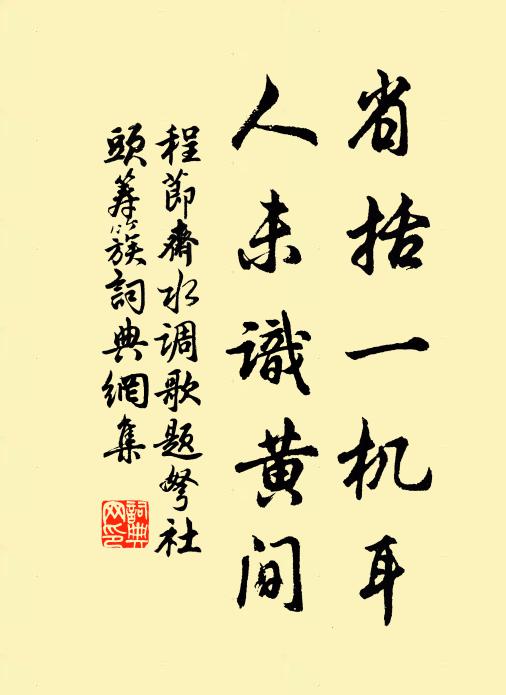 省括一机耳
人未識黄间
程節齋水调歌题弩社
頭籌簇詞典網集
詞典网印